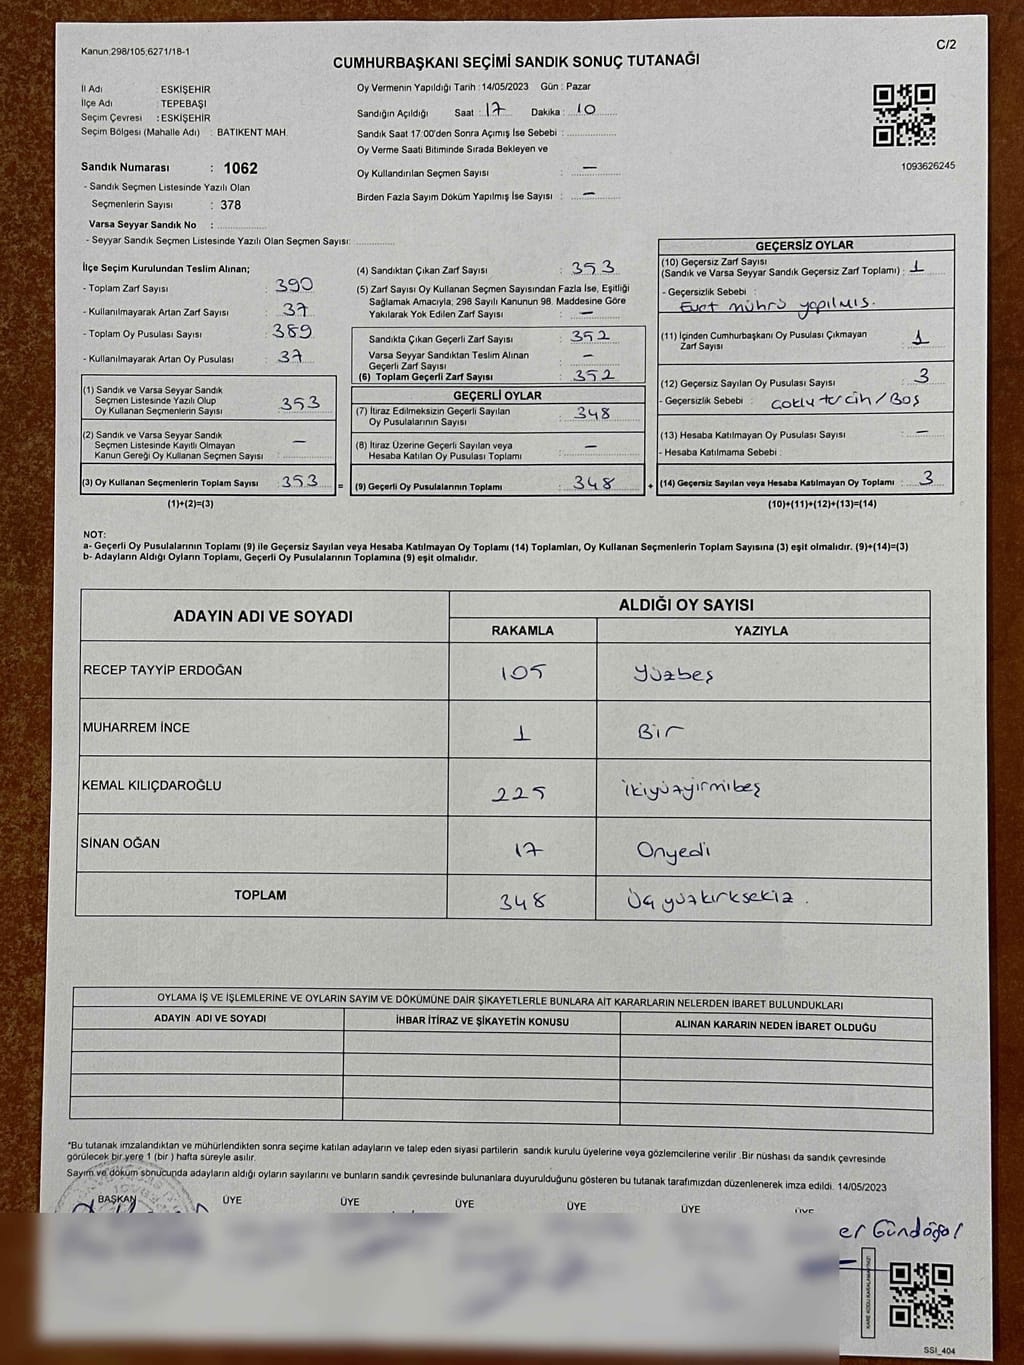 Kanun:298/105,6271/18-1
C/2
CUMHURBAŞKANI SEÇİMİ SANDIK SONUÇ TUTANAĞI
İl Adı : ESKİŞEHİR
İlçe Adı : TEPEBAŞI
Seçim Çevresi : ESKİŞEHİR
Seçim Bölgesi (Mahalle Adı) : BATIKENT MAH.
Sandık Numarası : 1062
- Sandık Seçmen Listesinde Yazılı Olan
Seçmenlerin Sayısı : 378
Varsa Seyyar Sandık No :
- Seyyar Sandık Seçmen Listesinde Yazılı Olan Seçmen Sayısı:
Oy Vermenin Yapıldığı Tarih : 14/05/2023 Gün : Pazar
Sandığın Açıldığı Saat : 17 Dakika : 10
Sandık Saat 17:00'den Sonra Açımış İse Sebebi :
Oy Verme Saati Bitiminde Sırada Bekleyen ve
Oy Kullandırılan Seçmen Sayısı : —
Birden Fazla Sayım Döküm Yapılmış İse Sayısı : —
1093626245
İlçe Seçim Kurulundan Teslim Alınan;
- Toplam Zarf Sayısı : 390
- Kullanılmayarak Artan Zarf Sayısı : 37
- Toplam Oy Pusulası Sayısı : 389
- Kullanılmayarak Artan Oy Pusulası : 37
(1) Sandık ve Varsa Seyyar Sandık
Seçmen Listesinde Yazılı Olup
Oy Kullanan Seçmenlerin Sayısı : 353
(2) Sandık ve Varsa Seyyar Sandık
Seçmen Listesinde Kayıtlı Olmayan
Kanun Gereği Oy Kullanan Seçmen Sayısı : —
(3) Oy Kullanan Seçmenlerin Toplam Sayısı : 353 =
(1)+(2)=(3)
(4) Sandıktan Çıkan Zarf Sayısı : 353
(5) Zarf Sayısı Oy Kullanan Seçmen Sayısından Fazla İse, Eşitliği
Sağlamak Amacıyla; 298 Sayılı Kanunun 98. Maddesine Göre
Yakılarak Yok Edilen Zarf Sayısı : —
Sandıkta Çıkan Geçerli Zarf Sayısı : 352
Varsa Seyyar Sandıktan Teslim Alınan
Geçerli Zarf Sayısı : —
(6) Toplam Geçerli Zarf Sayısı : 352
GEÇERLİ OYLAR
(7) İtiraz Edilmeksizin Geçerli Sayılan
Oy Pusulalarının Sayısı : 348
(8) İtiraz Üzerine Geçerli Sayılan veya
Hesaba Katılan Oy Pusulası Toplamı : —
(9) Geçerli Oy Pusulalarının Toplamı : 348 +
GEÇERSİZ OYLAR
(10) Geçersiz Zarf Sayısı
(Sandık ve Varsa Seyyar Sandık Geçersiz Zarf Toplamı) : 1
- Geçersizlik Sebebi :
Evet mührü yapılmış.
(11) İçinden Cumhurbaşkanı Oy Pusulası Çıkmayan
Zarf Sayısı : 1
(12) Geçersiz Sayılan Oy Pusulası Sayısı : 3
- Geçersizlik Sebebi : çoklu tercih/Boş
(13) Hesaba Katılmayan Oy Pusulası Sayısı : —
- Hesaba Katılmama Sebebi :
(14) Geçersiz Sayılan veya Hesaba Katılmayan Oy Toplamı : 3
(10)+(11)+(12)+(13)=(14)
NOT:
a- Geçerli Oy Pusulalarının Toplamı (9) ile Geçersiz Sayılan veya Hesaba Katılmayan Oy Toplamı (14) Toplamları, Oy Kullanan Seçmenlerin Toplam Sayısına (3) eşit olmalıdır. (9)+(14)=(3)
b- Adayların Aldığı Oyların Toplamı, Geçerli Oy Pusulalarının Toplamına (9) eşit olmalıdır.
ADAYIN ADI VE SOYADI
ALDIĞI OY SAYISI
RAKAMLA YAZIYLA
RECEP TAYYİP ERDOĞAN 105 Yüzbeş
MUHARREM İNCE 1 Bir
KEMAL KILIÇDAROĞLU 225 ikiyüzyirmibeş
SİNAN OĞAN 17 Onyedi
TOPLAM 348 Üç yüzkırksekiz.
OYLAMA İŞ VE İŞLEMLERİNE VE OYLARIN SAYIM VE DÖKÜMÜNE DAİR ŞİKAYETLERLE BUNLARA AİT KARARLARIN NELERDEN İBARET BULUNDUKLARI
ADAYIN ADI VE SOYADI İHBAR İTİRAZ VE ŞİKAYETİN KONUSU ALINAN KARARIN NEDEN İBARET OLDUĞU
*Bu tutanak imzalandıktan ve mühürlendikten sonra seçime katılan adayların ve talep eden siyasi partilerin sandık kurulu üyelerine veya gözlemcilerine verilir .Bir nüshası da sandık çevresinde
görülecek bir yere 1 (bir ) hafta süreyle asılır.
Sayım ve döküm sonucunda adayların aldığı oyların sayılarını ve bunların sandık çevresinde bulunanlara duyurulduğunu gösteren bu tutanak tarafımızdan düzenlenerek imza edildi. 14/05/2023
BAŞKAN ÜYE ÜYE ÜYE ÜYE ÜYE ÜYE
er Gündoğal
SSI_404